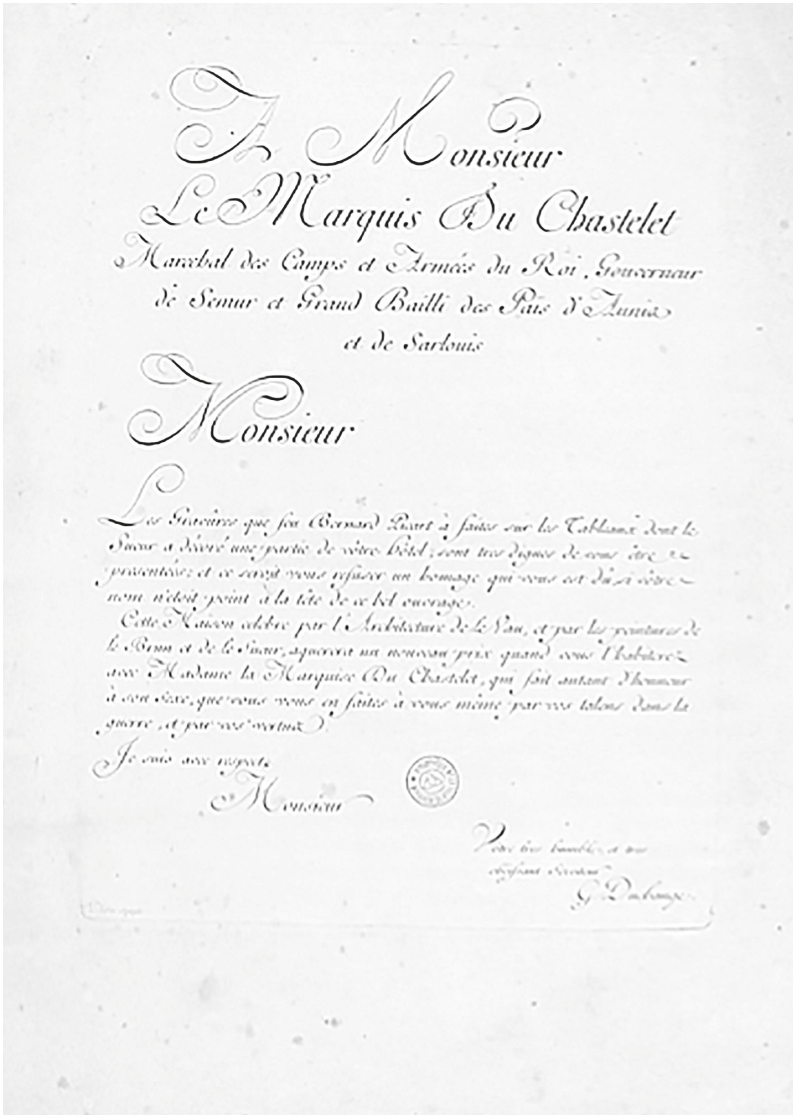 A Monsieur
Le Marquis Du Chastelet
Marechal des Camps et Armées du Roi, Gouverneur
de Semur et Grand Bailli des Païs d'Aunix
et de Sarlouis
Monsieur
Les Gravûres que feu Bernard Picart à faites sur les Tableaux dont le
Sueur a décoré une partie de vôtre hôtel, sont tres dignes de vous être
presentées; et ce seroit vous refuser un homage qui vous est dû, si vôtre
nom n'étoit point à la tête de ce bel ouvrage.
Cette Maison celebre par l'Architecture de le Vau, et par les peintures de
le Brun et de le Sueur, aquerera un nouveau prix quand vous l'habiterez
avec Madame la Marquise Du Chastelet, qui fait autant d'honneur
à son sexe, que vous vous en faites à vous même par vos talens dans la
guerre, et par vos vertus.
Je suis avec respect
Monsieur
Votre tres humble et tres
obeissant Serviteur
G. Duchange